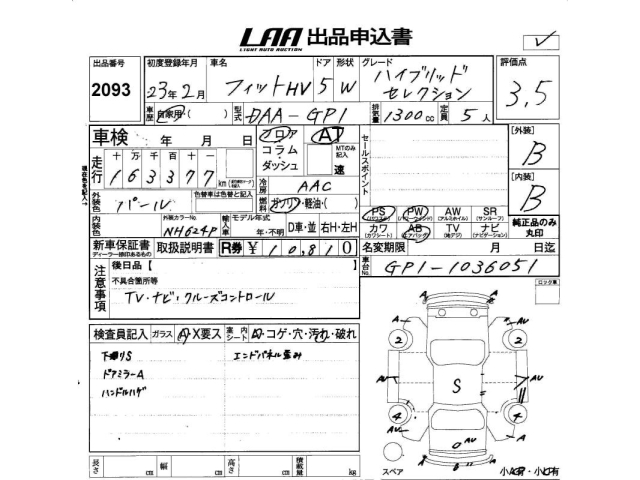 LAA 出品申込書
LIGHT AUTO AUCTION
出品番号 初度登録年月 車名 ドア 形状 グレード 評価点
2093 23年2月 フィットHV 5 W ハイブリッド セレクション 3.5
車歴 自家用・( ) 型式 DAA-GP1 排気量 1300 cc 定員 5 人
車検 年 月 日 フロア コラム ダッシュ AT MTのみ記入 速 セールスポイント [外装] B
走行 十万千百十 163377 km
冷房 AAC
[内装] B
外装色 パール 色替車は色替と記入 燃料 ガソリン・軽油・( )
PS PW AW SR
(パワーウィンド) (アルミホイル) (サンルーフ)
カワ AB TV ナビ 純正品のみ丸印
(カワシート) (エアバッグ) (地デジ) (ナビゲーション)
内装色 外装カラーNo. NH624P 輸入車 モデル年式 年・不明 D車・並 右H・左H
新車保証書 取扱説明書 R券 ¥10,810 名変期限 月 日迄
ディーラー捺印あるもの
注意事項 後日品【 】 車台No. GP1-1036051
不具合箇所等
TV・ナビ・クルーズコントロール
ロック車
検査員記入 ガラス A・X要ス 室内シート A・コゲ・穴・汚れ・破れ
下廻りS エンドパネル歪み
ドアミラーA
ハンドルハゲ
A A
2 2
A A
AU S AU
AU
4 4
AU A
AU
スペア
長さ cm 幅 cm 高さ cm 積載量 kg